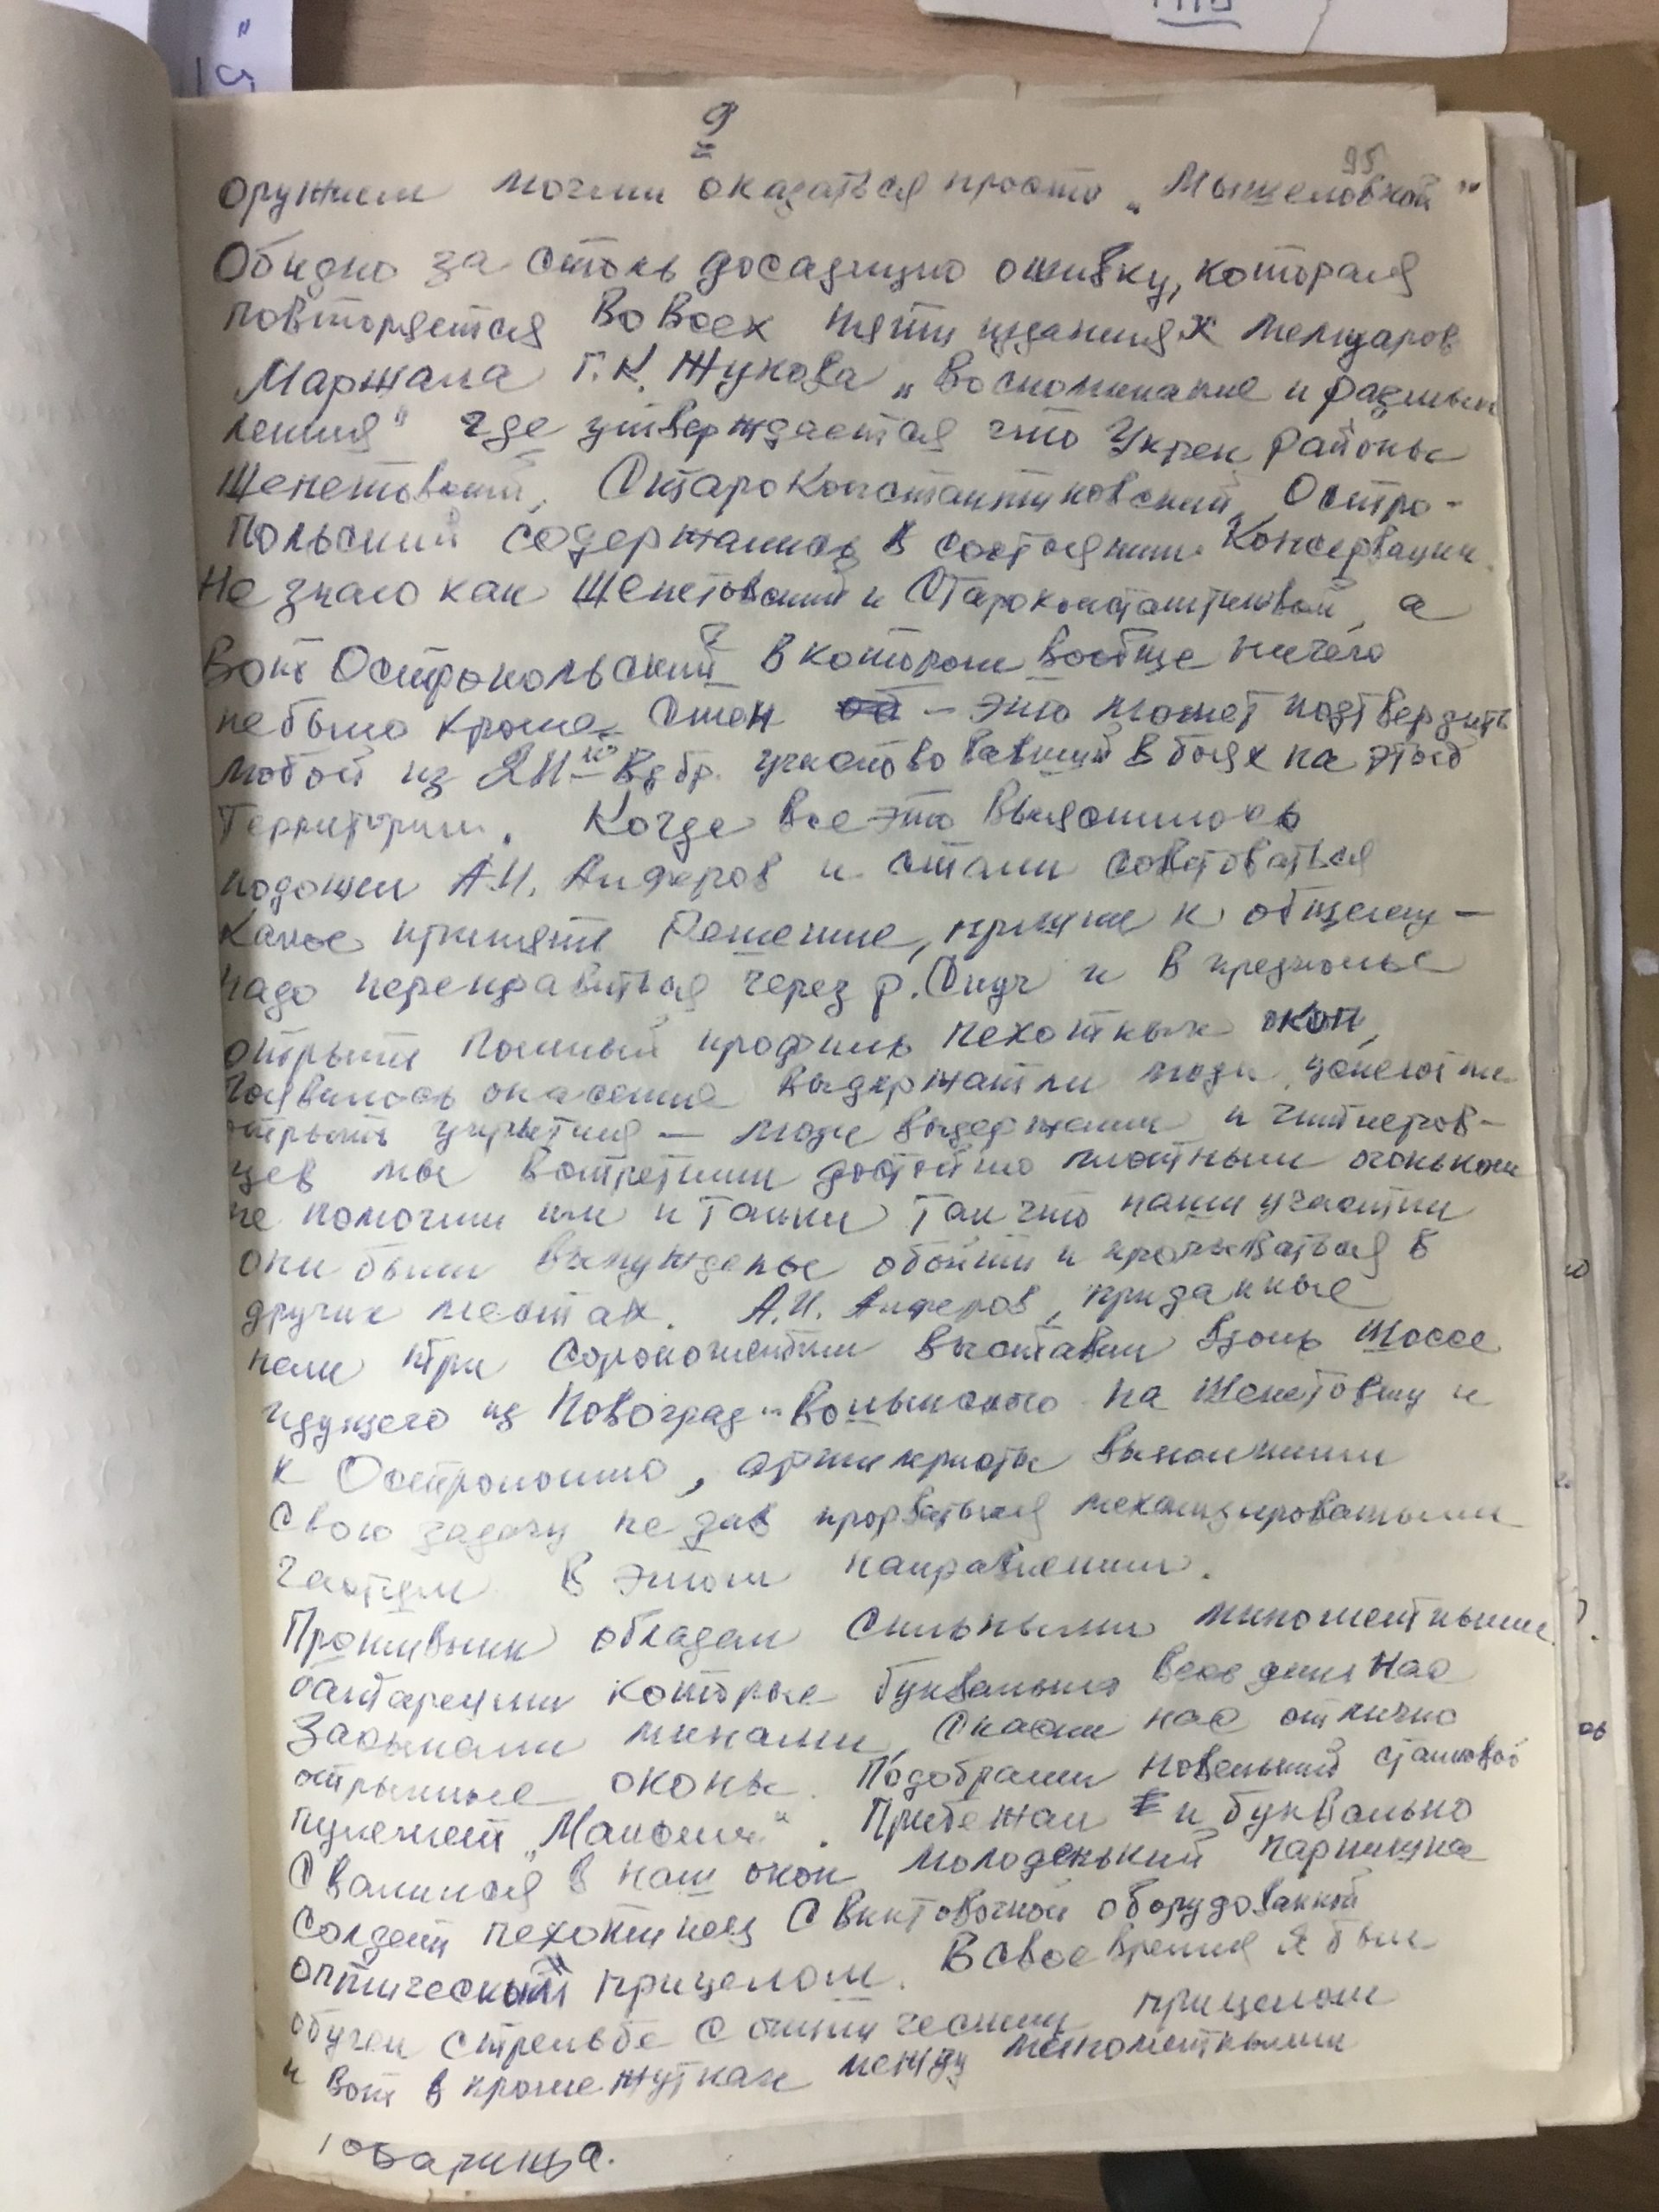 9
95
оружием могли оказаться просто „Мышеловкой"
Обидно за столь досадную ошибку, которая
повторяется во всех пяти изданиях мемуаров
Маршала Г.К. Жукова „Воспоминание и размыш
ления" где утверждается что Укреп. районы
Шепетовский, Староконстантиновский, Остро-
польский содержались в состоянии Консервации.
Не знаю как Шепетовский и Староконстантиновский, а
вот Остропольский в котором вообще ничего
не было кроме стен — это может подтвердить
любой из 211-й Вдбр. участвовавший в боях на этой
Территории. Когда все это выяснилось
подошел А.И. Анферов и стали советоваться
Какое принять Решение, пришли к общему —
надо переправиться через р. Случ и в предполье
открыть полный профиль пехотных окоп,
Появилось опасение выдержат ли люди, успеют ли
открыть укрытия — люди выдержали и гитлеров-
цев мы встретили достойно плотным огоньком
не помогли им и танки так что наши участки
они были вынуждены обойти и прорываться в
других местах. А.И. Анферов, приданные
нам три сорокопятки выставил вдоль шоссе
идущего из Новоград-Волынского на Шепетовку и
к Острополю, артиллеристы выполнили
свою задачу не дав прорваться механизированными
частям в этом направлении.
Противник обладал сильными минометными
батареями которые буквально весь день нас
Засыпали минами, Спасли нас отлично
открытые окопы. Подобрали новенький станковой
пулемет „Максим". Прибежал и буквально
Свалился в наш окоп молоденький парнишка
солдат пехотинец с винтовочкой оборудованной
оптическим прицелом. В свое время я был
обучен стрельбе с оптическим прицелом
и вот в промежутках между минометными
товарища.